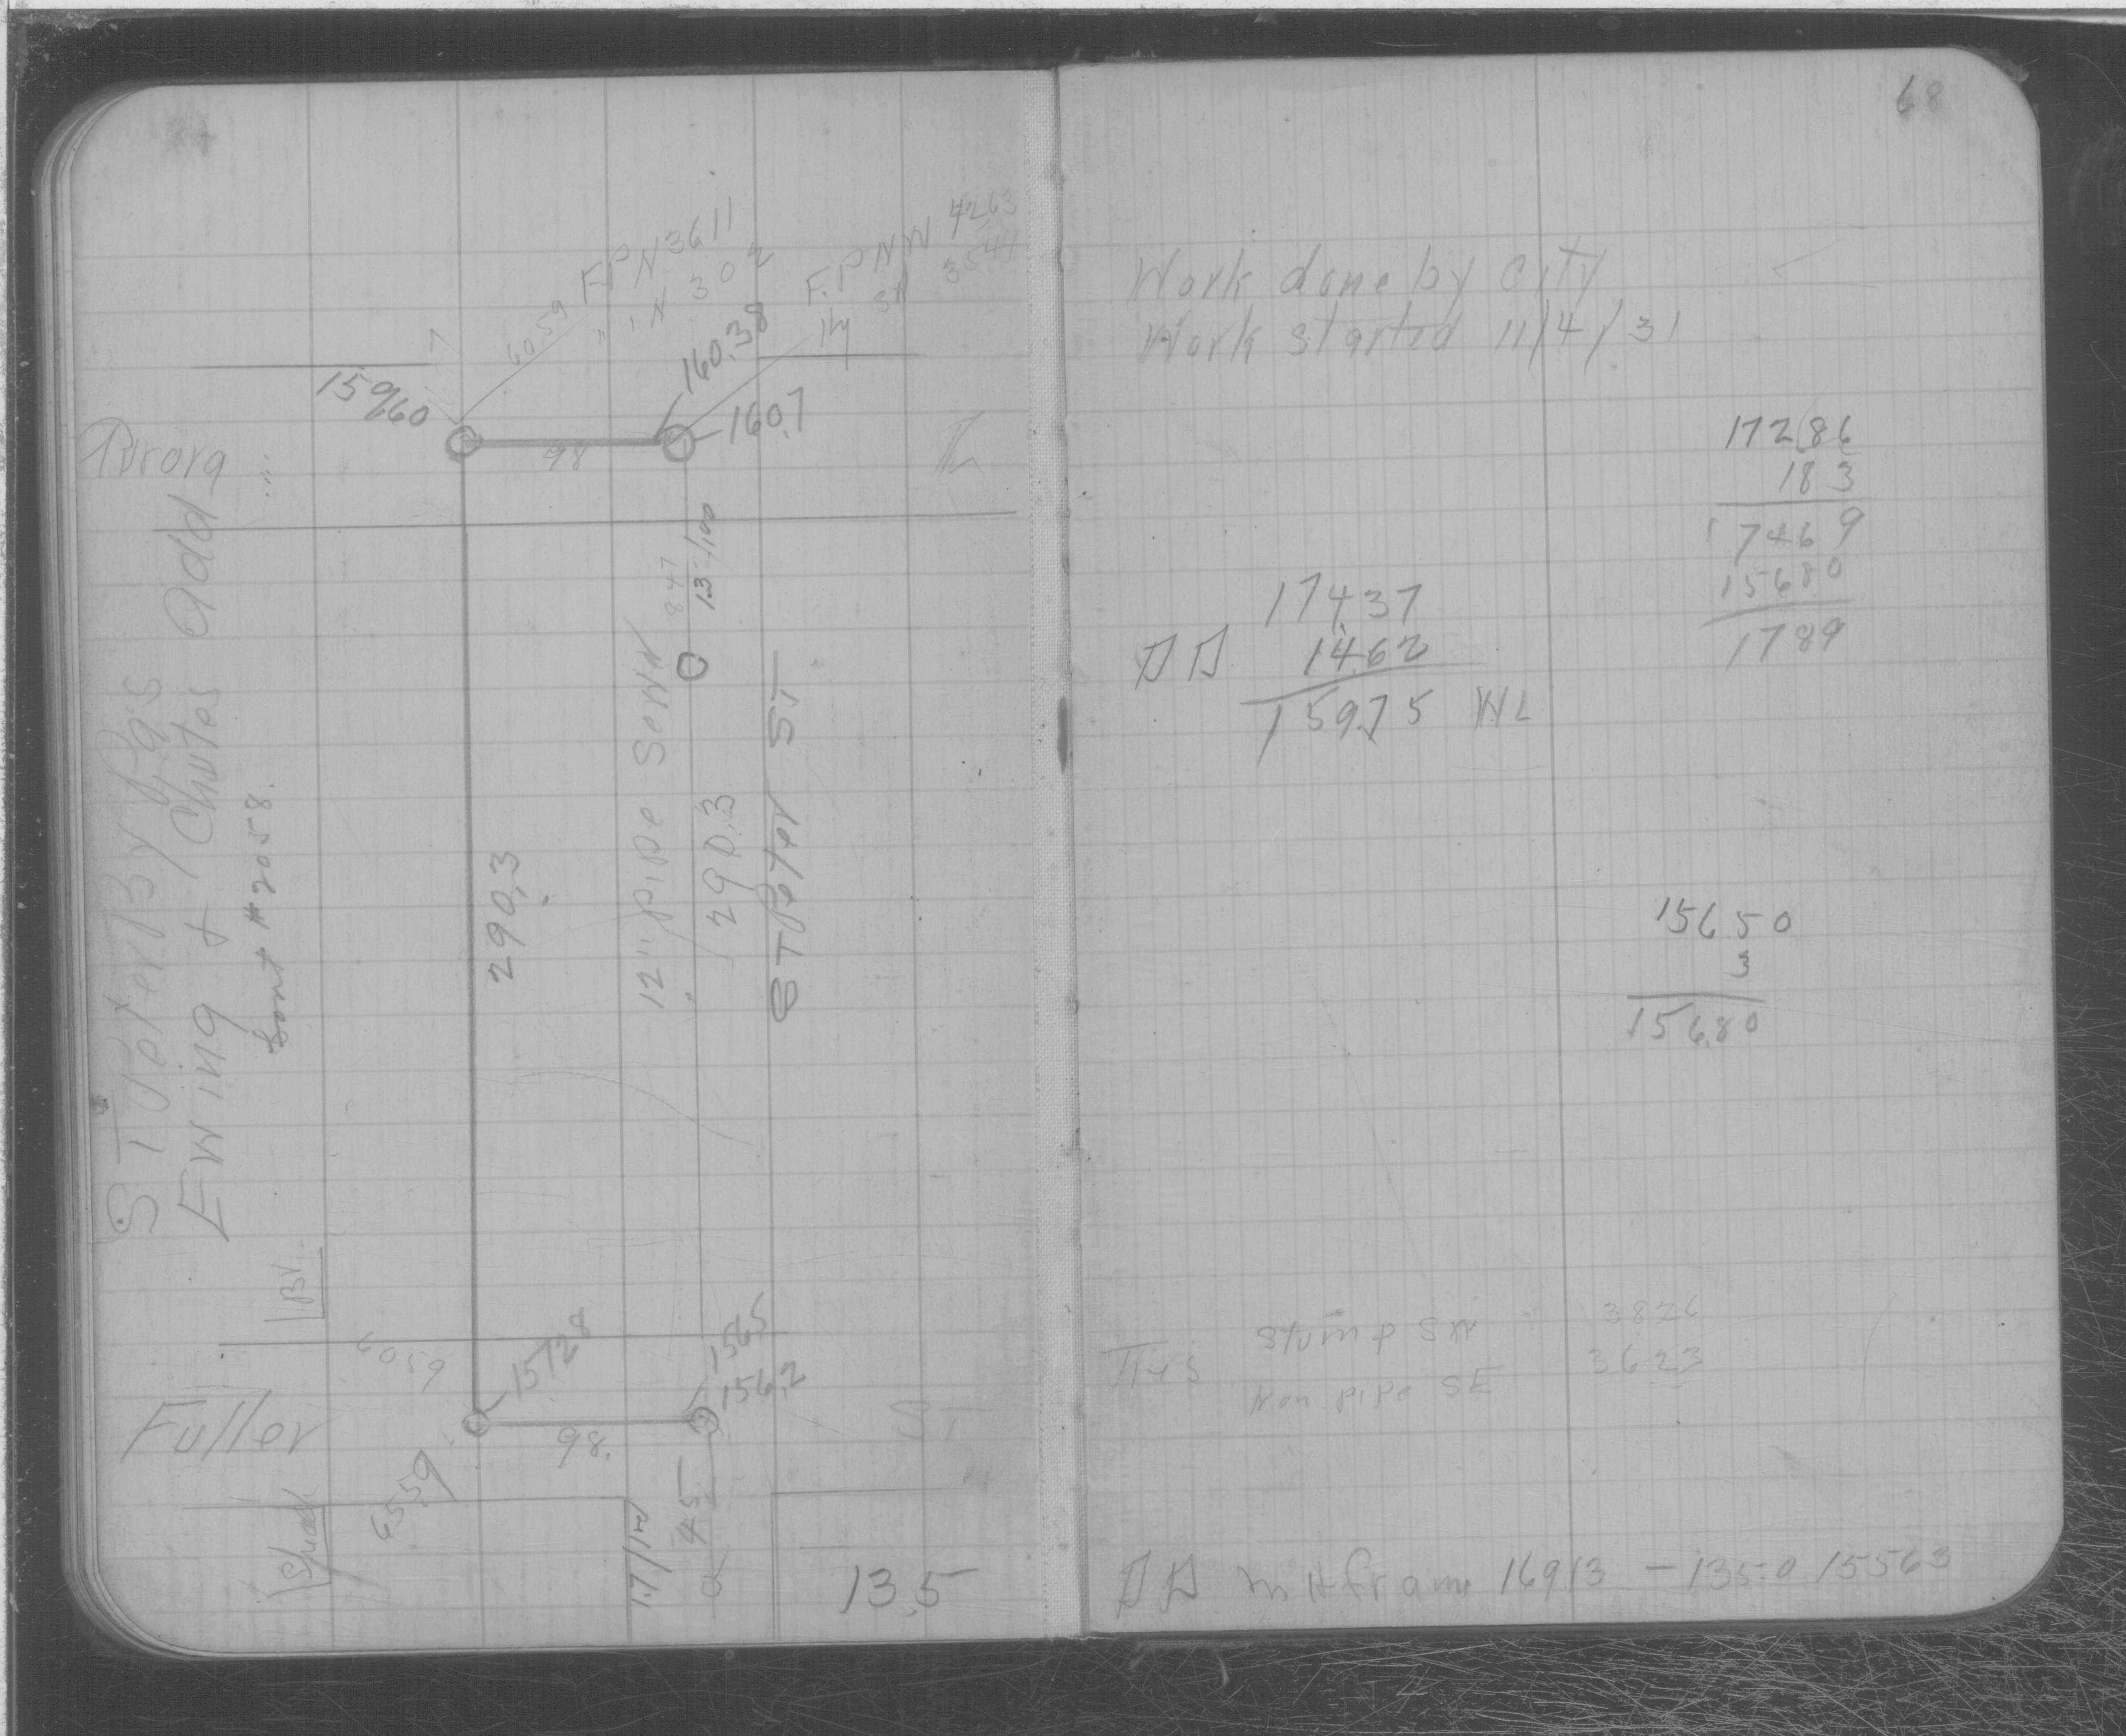 68
F.P N 3611
" " N 302
F.P NW 4263
SW 3544
6059
160.38
159.60
160.7
98
Aurora
St Peter By P.9.S
Ewing & Chutes Add
Cont # 2058.
290.3
12" pipe Sewer
847
1.3/100
290.3
St Peter ST
B.V.
6059
157.28
156.5
156.2
Fuller
98.
ST
5559
1.7/100
45
13.5
Work done by City
Work started 11/4/31
172.86
183
174.69
156.80
17.89
174.37
14.62
159.75 WL
156.50
3
156.80
Ties
Stump SW 3826
Iron pipe SE 3623
M H frame 169.13 - 13.50 155.63